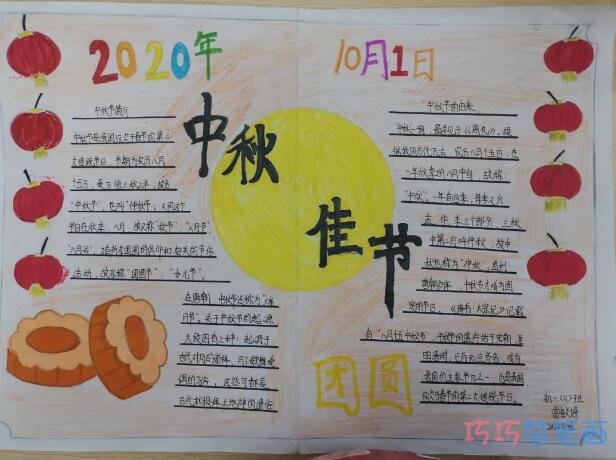 2020年
10月1日
中秋佳节
中秋节简介
中秋节是我国仅次于春节的第二
大传统节日，节期为农历八月
十五日，是日恰逢三秋之半，故名
"中秋节"，也叫"仲秋节"；又因这个
节日在秋季、八月，故又称"秋节"、"八月节"、
"八月会"，又有祈求团圆的信仰和相关的节俗
活动，故亦称"团圆节"、"女儿节"。
古代秋报拜土地神的遗俗
"中秋节的由来
中秋一词，最早见于《周礼》，根
据我国古代历法，农历八月十五日，在
一年秋季的八月中旬，故称：
"中秋"。一年有四季，每季又分
孟 仲 季三个部分，三秋
中第二月叫仲秋，故中
秋也称为"仲秋"，直到
唐朝初年，中秋节才成为固
定的节日。《唐书·太宗记》记载
有"八月十五中秋节"，中秋节的盛行始于宋朝，至
明清时，已与元旦齐名，成为
我国的主要节日之一，也是我国
仅次于春节的第二大传统节日。
团圆
初一(1)班
巧巧简笔画